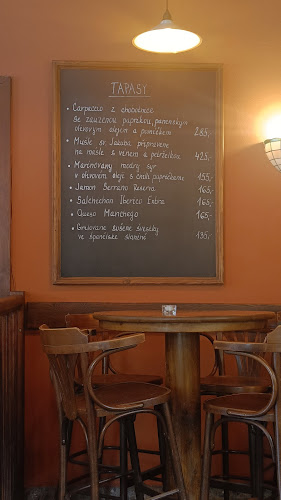 TAPASY
• Carpaccio z chobotnice
se zauzenou paprikou, panenským
olivovým olejem a pomičkem 285,-
• Mušle sv. Jakuba připravené
na másle s vínem a petrželkou 425,-
• Marinovaný modrý syr
v olivovém oleji s chilli papričkami 155,-
• Jamon Serrano Reserva 165,-
• Salchichon Iberico Extra 165,-
• Queso Manchego 165,-
• Grilované sušené švestky
ve španělské slanině 135,-